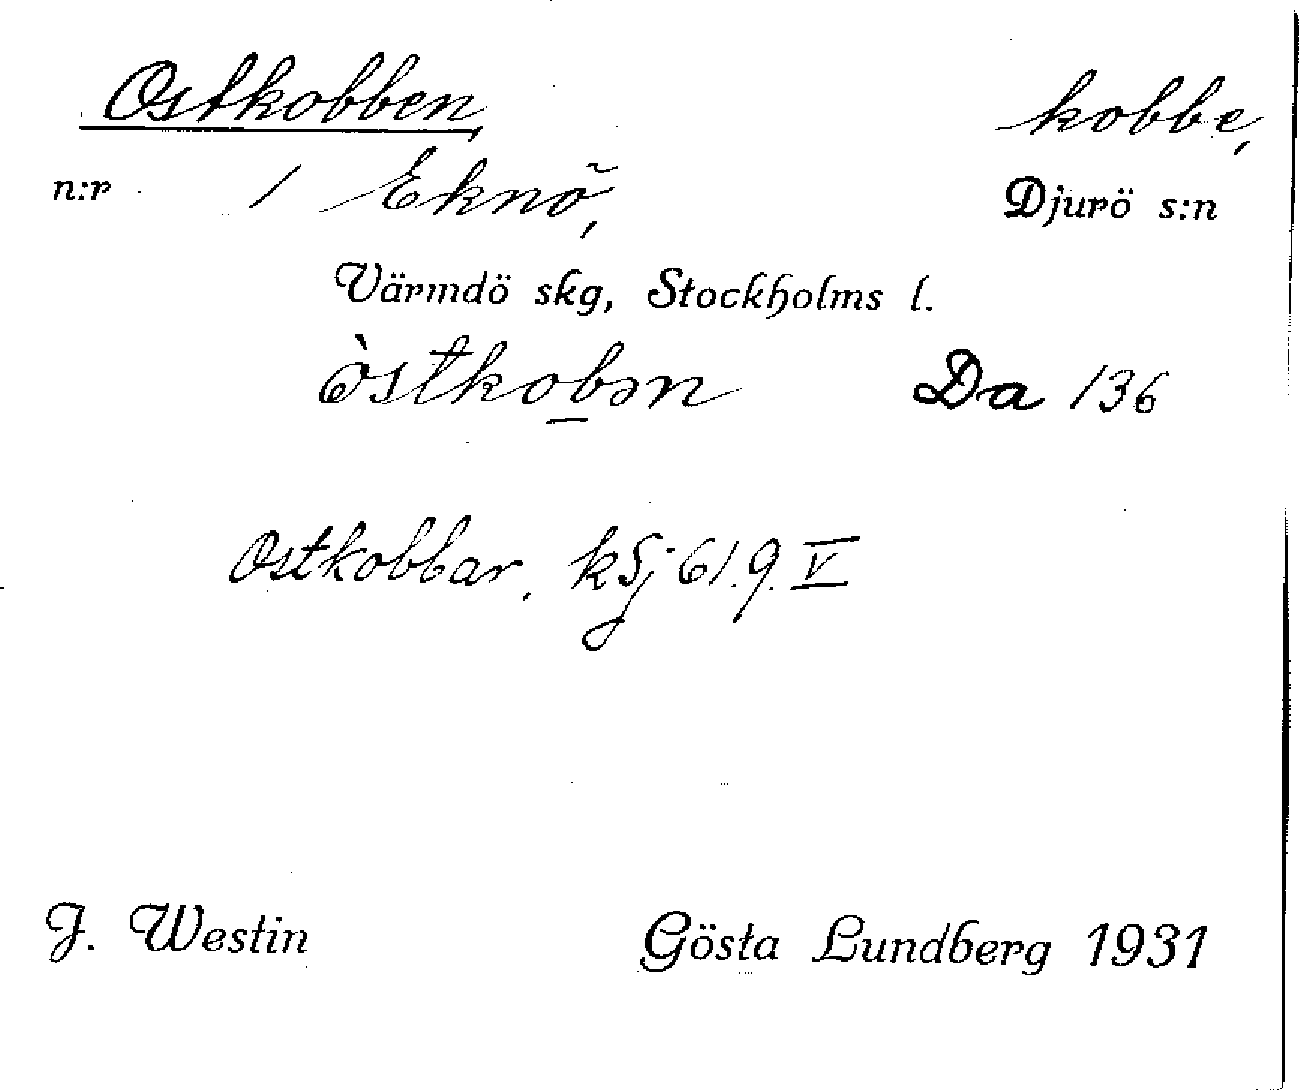 Ostkobben, kobbe,
n:r 1 Eknö, Djurö s:n
Värmdö skg, Stockholms l.
òstkob̲ən Da 136
Ostkobbar, kSj 61.9.V
J. Westin Gösta Lundberg 1931